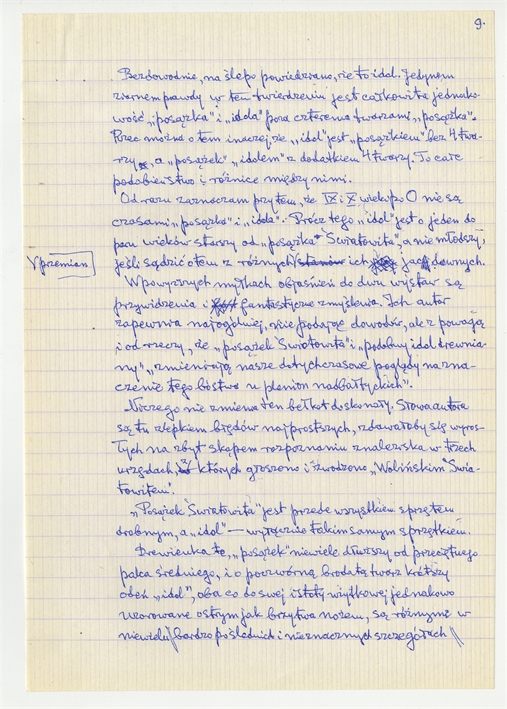 9.
Bezdowodnie, na ślepo powiedziano, że to idol. Jedynem
ziarnem prawdy w tem twierdzeniu jest całkowita jednako-
wość „posążka" i „idola" poza czterema twarzami „posążka".
Rzec można o tem inaczej, że „idol" jest „posążkiem" bez 4 twa-
rzy, a „posążek" „idolem" z dodatkiem 4 twarzy. To całe
podobieństwo i różnice między nimi.
Od razu zaznaczam przytem, że IX i X wiek po 0 nie są
czasami „posążka" i „idola". Prócz tego „idol" jest o jeden do
paru wieków starszy od „posążka" Światowita", a nie młodszy,
V przemian
jeśli sądzić o tem z różnych stanów ich jac dawnych.
W powyższych myłkach objaśnień do dwu wystaw są
przywidzenia i fantastyczne zmyślenia. Ich autor
zapewnia najogólniej, nie podając dowodów, ale z powagą
i od rzeczy, że „posążek Światowita" i „podobny idol drewnia-
ny" „zmieniają nasze dotychczasowe poglądy na zna-
czenie tego bóstwa u plemion nadbałtyckich".
Niczego nie zmienia ten bełkot doskonały. Słowa autora
są tu zlepkiem błędów najprostszych, zdawałoby się wyros-
łych na zbyt skąpem rozpoznaniu znaleziska w trzech
urzędach, z których głoszono i zwodzono „Wolińskim" Świa-
towitem".
„Posążek Światowita" jest przede wszystkiem sprzętem
drobnym, a „idol" — wyłącznie takim samym sprzętkiem.
Drewienka te, „posążek" niewiele dłuższy od przeciętnego
palca średniego, i o poczwórną brodatą twarz krótszy
odeń „idol", oba co do swej istoty użytkowej jednakowo
wzorowane ostrym jak brzytwa nożem, są różnymi w
niewielu bardzo poślednich i nieznacznych szczegółach